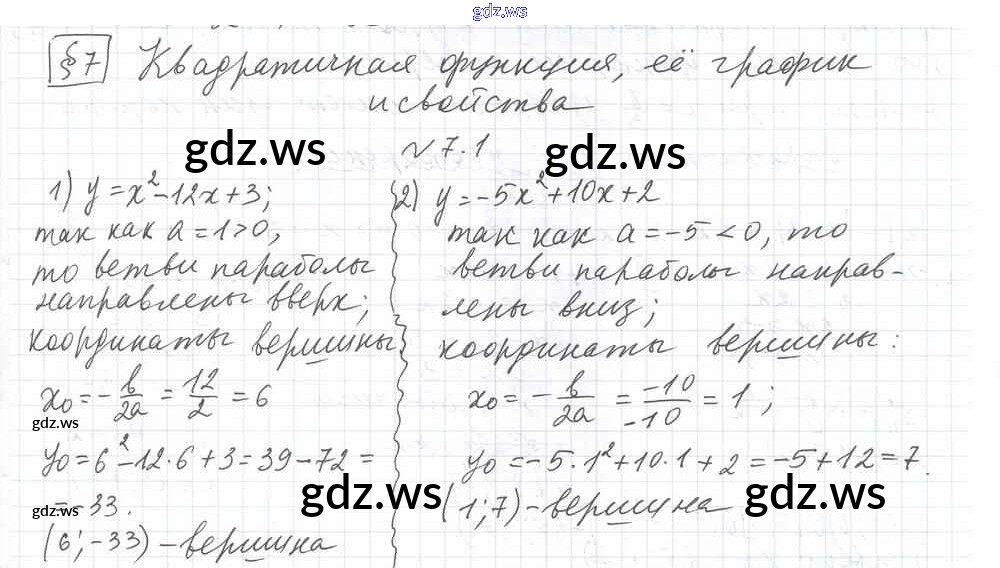 gdz.ws
§7 Квадратичная функция, её график
и свойства
gdz.ws
№ 7.1
gdz.ws
1) y = x² - 12x + 3;
так как a = 1 > 0,
то ветви параболы
направлены вверх;
координаты вершины
x₀ = - b/2a = 12/2 = 6
gdz.ws
y₀ = 6² - 12·6 + 3 = 39 - 72 =
gdz.ws
= -33.
(6; -33) - вершина
2) y = -5x² + 10x + 2
так как a = -5 < 0, то
ветви параболы направ-
лены вниз;
координаты вершины:
x₀ = - b/2a = -10/-10 = 1;
y₀ = -5·1² + 10·1 + 2 = -5 + 12 = 7.
gdz.ws
gdz.ws
(1; 7) - вершина